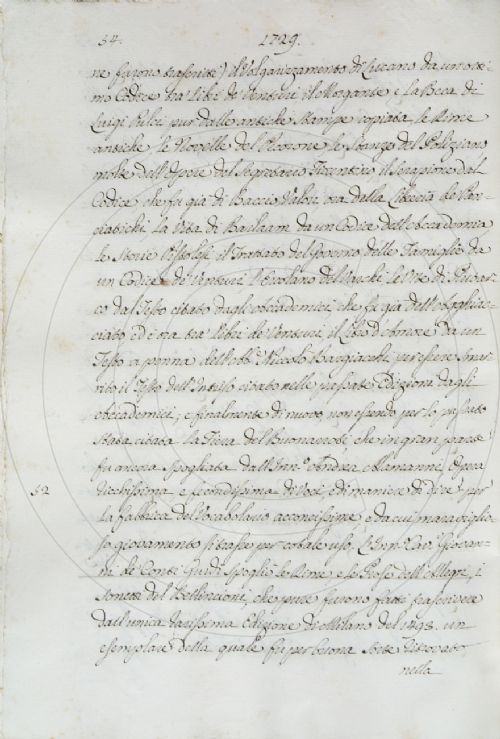 54. 1729.
ne furono trascritti) il Volgarizzamento di Lucano da un otti-
mo Codice tra' libri de' Venturi il Morgante e la Beca di
Luigi Pulci pur dalle antiche Stampe copiata, le Rime
antiche, le Novelle del Pecorone, le Stanze del Poliziano
molte dell'Opere del Segretario Fiorentino, il Serapione dal
Codice che fu già di Baccio Valori, ora della Libreria de' Pan-
ciatichi, la Vita di Barlaam da un Codice dell'Accademia
le Storie Pistolesi, il Trattato del Governo delle Famiglie da
un Codice de' Venturi l'Ercolano del Varchi le Vite di Plutar-
co dal Testo citato dagli Accademici, che fu già dell'
ciato ed è ora tra' libri de' Venturi, il Libro d'Amore da un
Testo a penna dell'Abb.e Niccolò Bargiacchi, per essere smar-
rito il Testo dell' citato nelle passate Edizioni dagli
Accademici, e finalmente di nuovo non essendo per lo passato
stata citata la Fiera del Buonarroti che in gran parte
fu ancora spogliata dall'Inn.o Andrea Alamanni, Opera
52 ricchissima, e fecondissima di Voci, e di maniere di dire per
la fabbrica del Vocabolario acconcissime, e da cui maraviglio-
so giovamento si trasse per cotale uso. L'Inn.o Cav.r Giovan-
ni de' Conti Guidi spogliò le Rime e le Prose dell'Allegri, i
Sonetti del Bellincioni, che pure furono fatti trascrivere
dall'unica rarissima Edizione di Milano del 1493. un
esemplare della quale fu per buona sorte ritrovato
nella